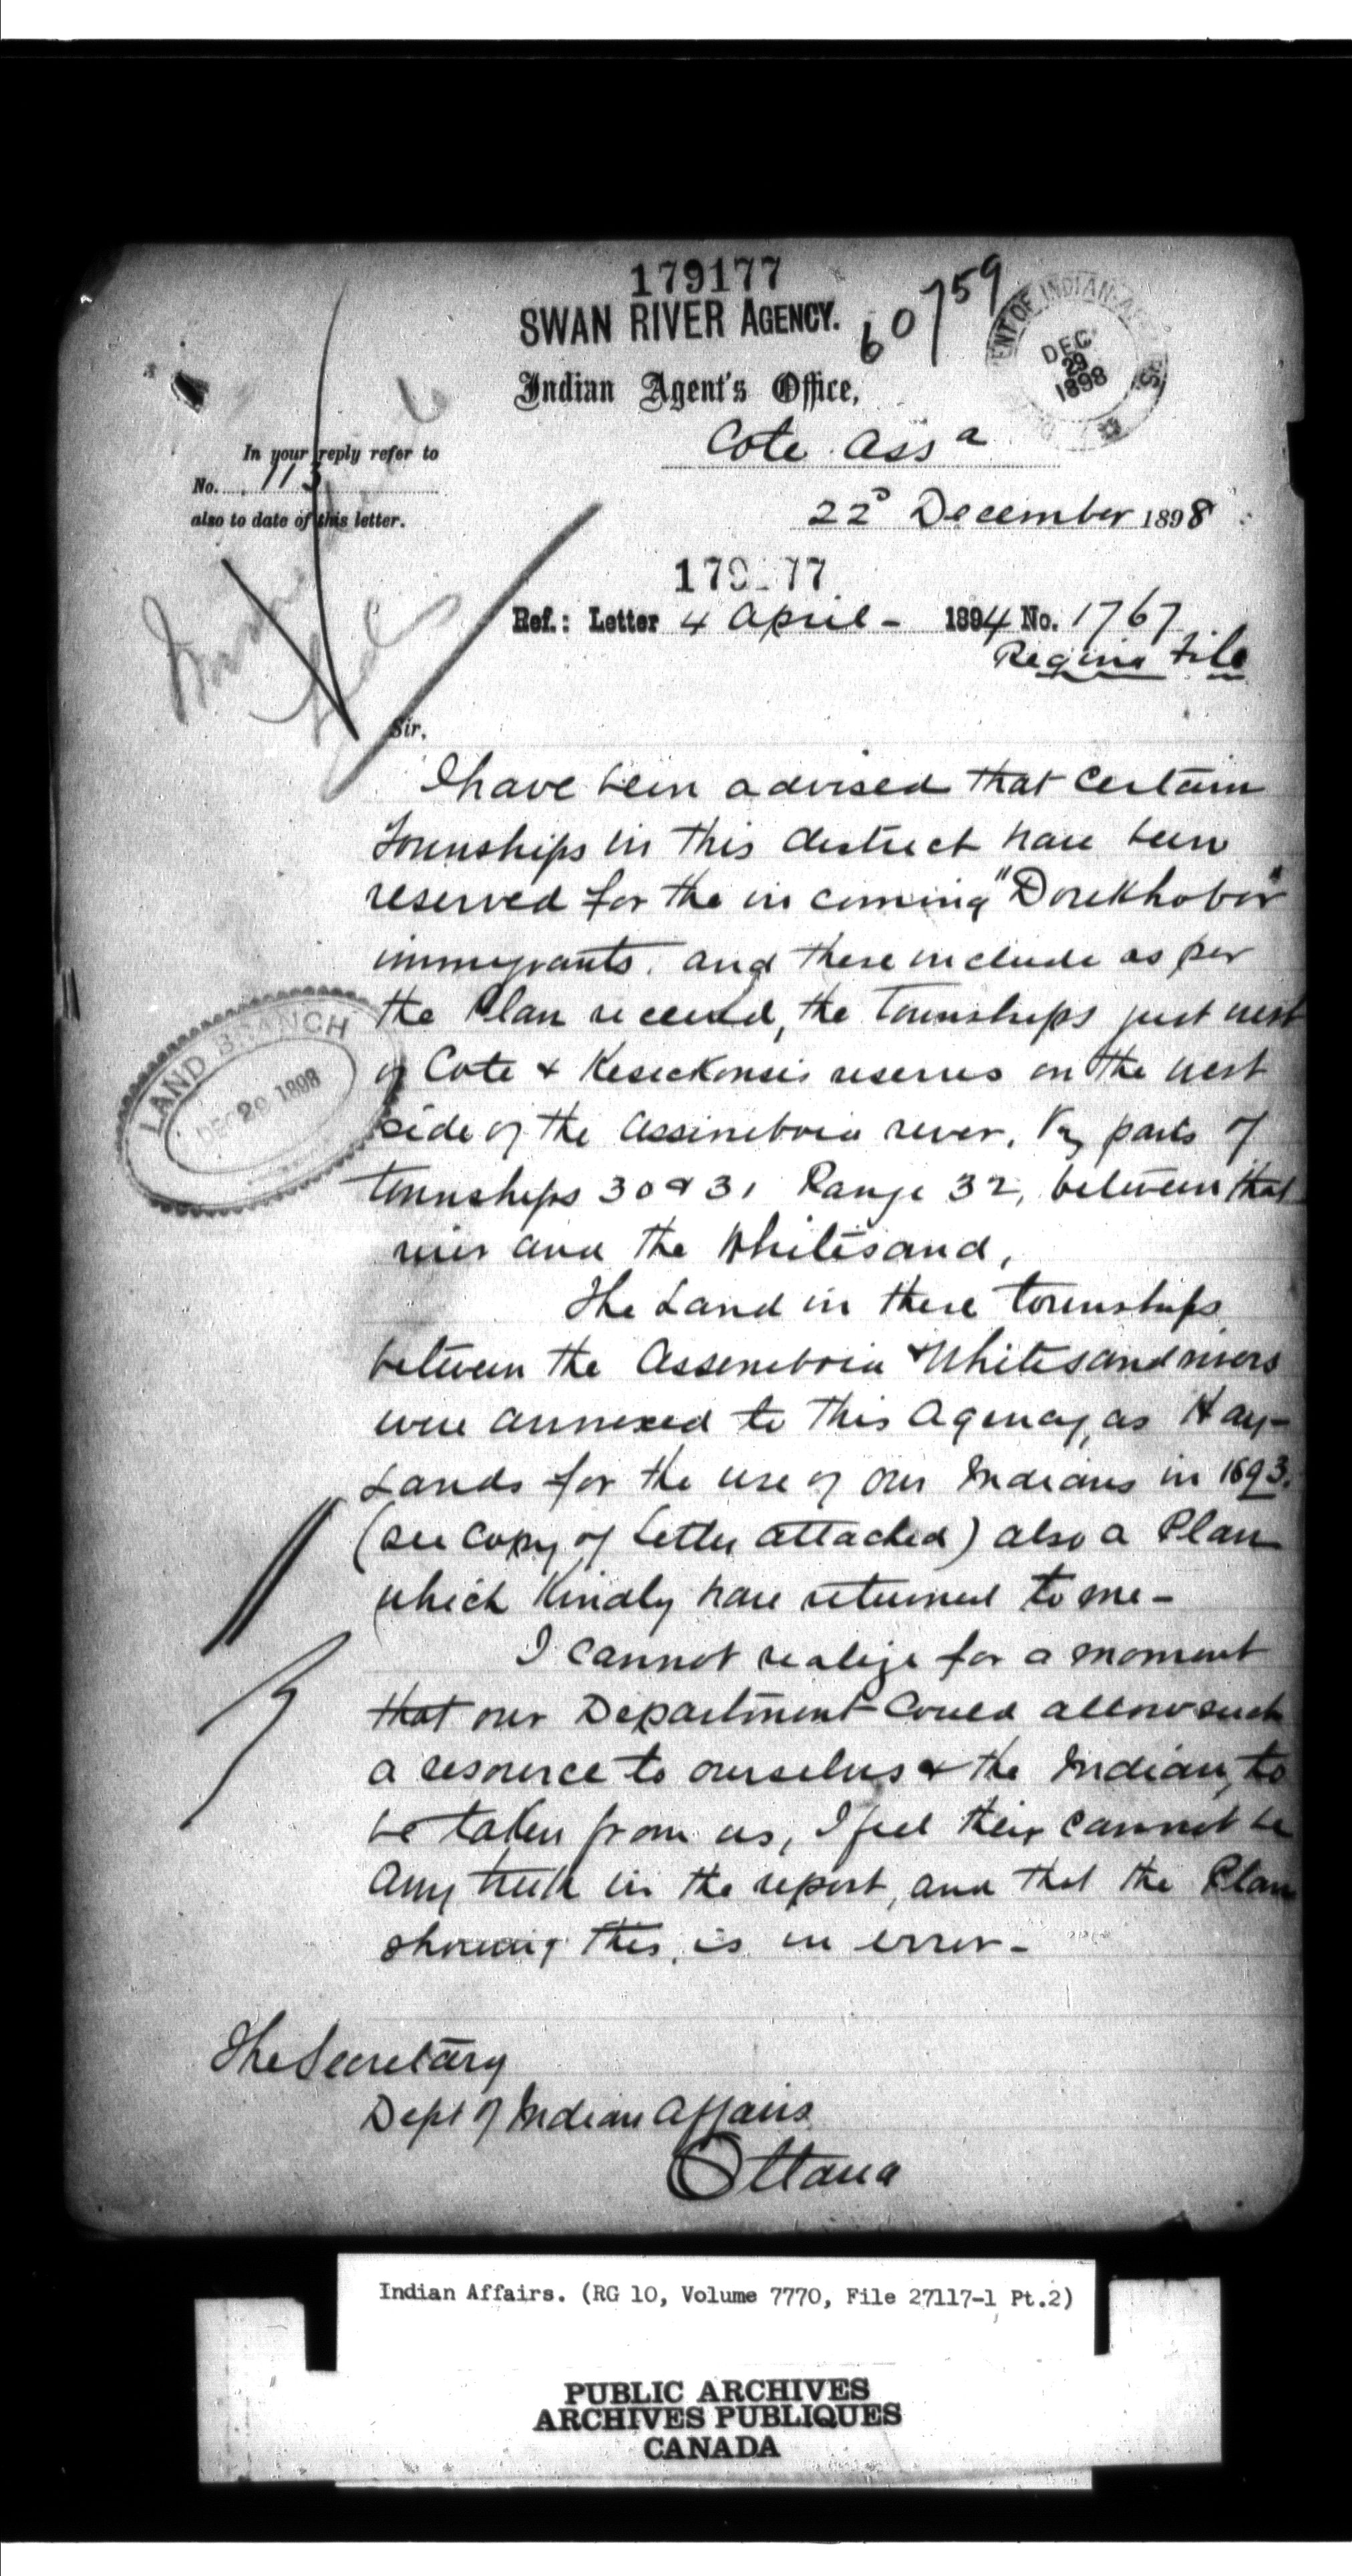 179177
SWAN RIVER AGENCY.
60759
Indian Agent's Office,
DEC 29 1898
Cote Assa
In your reply refer to
No. 113
also to date of this letter.
22d December 1898
Ref.: Letter 4 April - 1894 No. 1767
Regina File
Sir,
I have been advised that Certain
Townships in this district have been
reserved for the in coming "Doukhobor"
immigrants. and these include as per
the Plan received, the Townships just west
of Cote & Keseekonsis reserves on the west
side of the Assineboia river, Viz parts of
townships 30 & 31 Range 32, between that
river and the Whitesand,
LAND BRANCH
DEC 29 1898
The Land in these townships
between the Assineboia & Whitesand rivers
were annexed to this Agency, as Hay-
Lands for the use of our Indians in 1893.
(see Copy of Letter attached) also a Plan
which Kindly have returned to me -
I cannot realize for a moment
that our Department could allow such
a resource to ourselves & the Indian, to
be taken from us, I feel their cannot be
any truth in the report, and that the Plan
showing this, is in error -
The Secretary
Dept of Indian Affairs
Ottawa
Indian Affairs. (RG 10, Volume 7770, File 27117-1 Pt.2)
PUBLIC ARCHIVES
ARCHIVES PUBLIQUES
CANADA